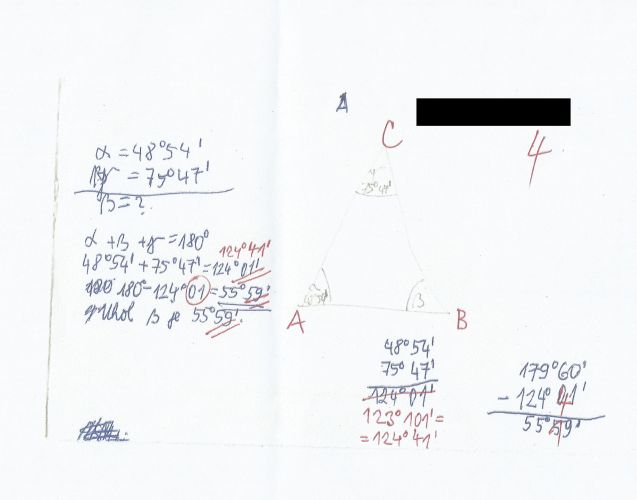 A
C
4
α = 48°54'
γ = 75°47'
β = ?
γ
75°47'
α + β + γ = 180°
124°41'
48°54' + 75°47' = 124°01'
180° - 124°01' = 55°59'
β je 55°59'
α
β
A
B
48°54'
75°47'
124°01'
123°101' =
= 124°41'
179°60'
- 124°41'
55°59'